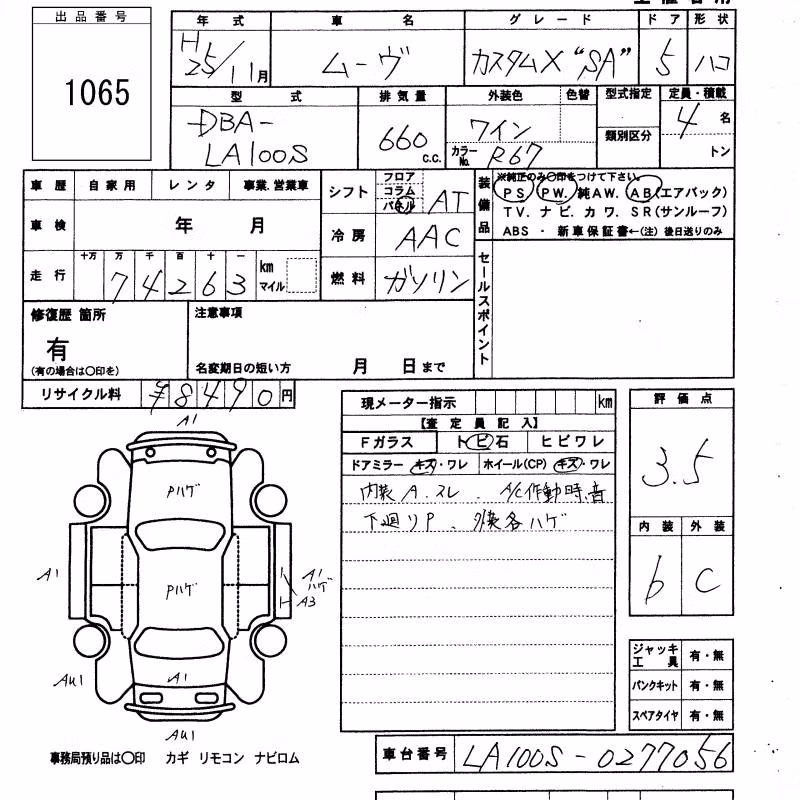 出品番号
1065
年式 車名 グレード ドア 形状
H25/11月 ムーヴ カスタムX "SA" 5 ハコ
型式 排気量 外装色 色替 型式指定 定員・積載
類別区分
-DBA-
LA100S
660 c.c.
ワイン
カラーNo. R67
4名
トン
車歴 自家用 レンタ 事業.営業車
車検 年 月
走行 十万 万 千 百 十 一
74263 km マイル
シフト フロア コラム パネル AT
冷房 AAC
燃料 ガソリン
装備品
※純正のみ〇印をつけて下さい。
PS. PW. 純AW. AB(エアバック)
TV. ナビ. カワ. SR(サンルーフ)
ABS ・ 新車保証書←(注) 後日送りのみ
セールスポイント
修復歴 箇所
有
(有の場合は〇印を)
注意事項
名変期日の短い方 月 日まで
リサイクル料 ¥8490円
現メーター指示 km
【査定員記入】
Fガラス トビ石 ヒビワレ
ドアミラー キズ・ワレ ホイール(CP) キズ・ワレ
内装A.スレ.A/C作動時.音
下廻りP、外装各ハゲ
評価点
3.5
内装 外装
b C
A1
Pハゲ
Pハゲ
A1
A1
ハゲ
A3
AU1
A1
AU1
ジャッキ工具 有・無
パンクキット 有・無
スペアタイヤ 有・無
事務局預り品は〇印 カギ リモコン ナビロム
車台番号 LA100S-0277056